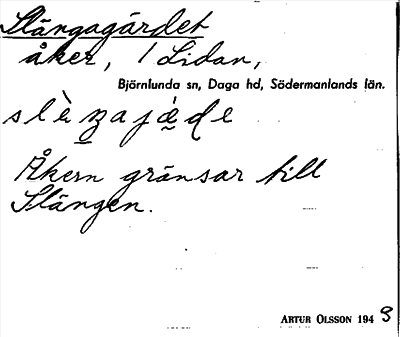 Slängagärdet
åker, / Lidan,
Björnlunda sn, Daga hd, Södermanlands län.
Åkern gränsar till
Slängen.
ARTUR OLSSON 1943